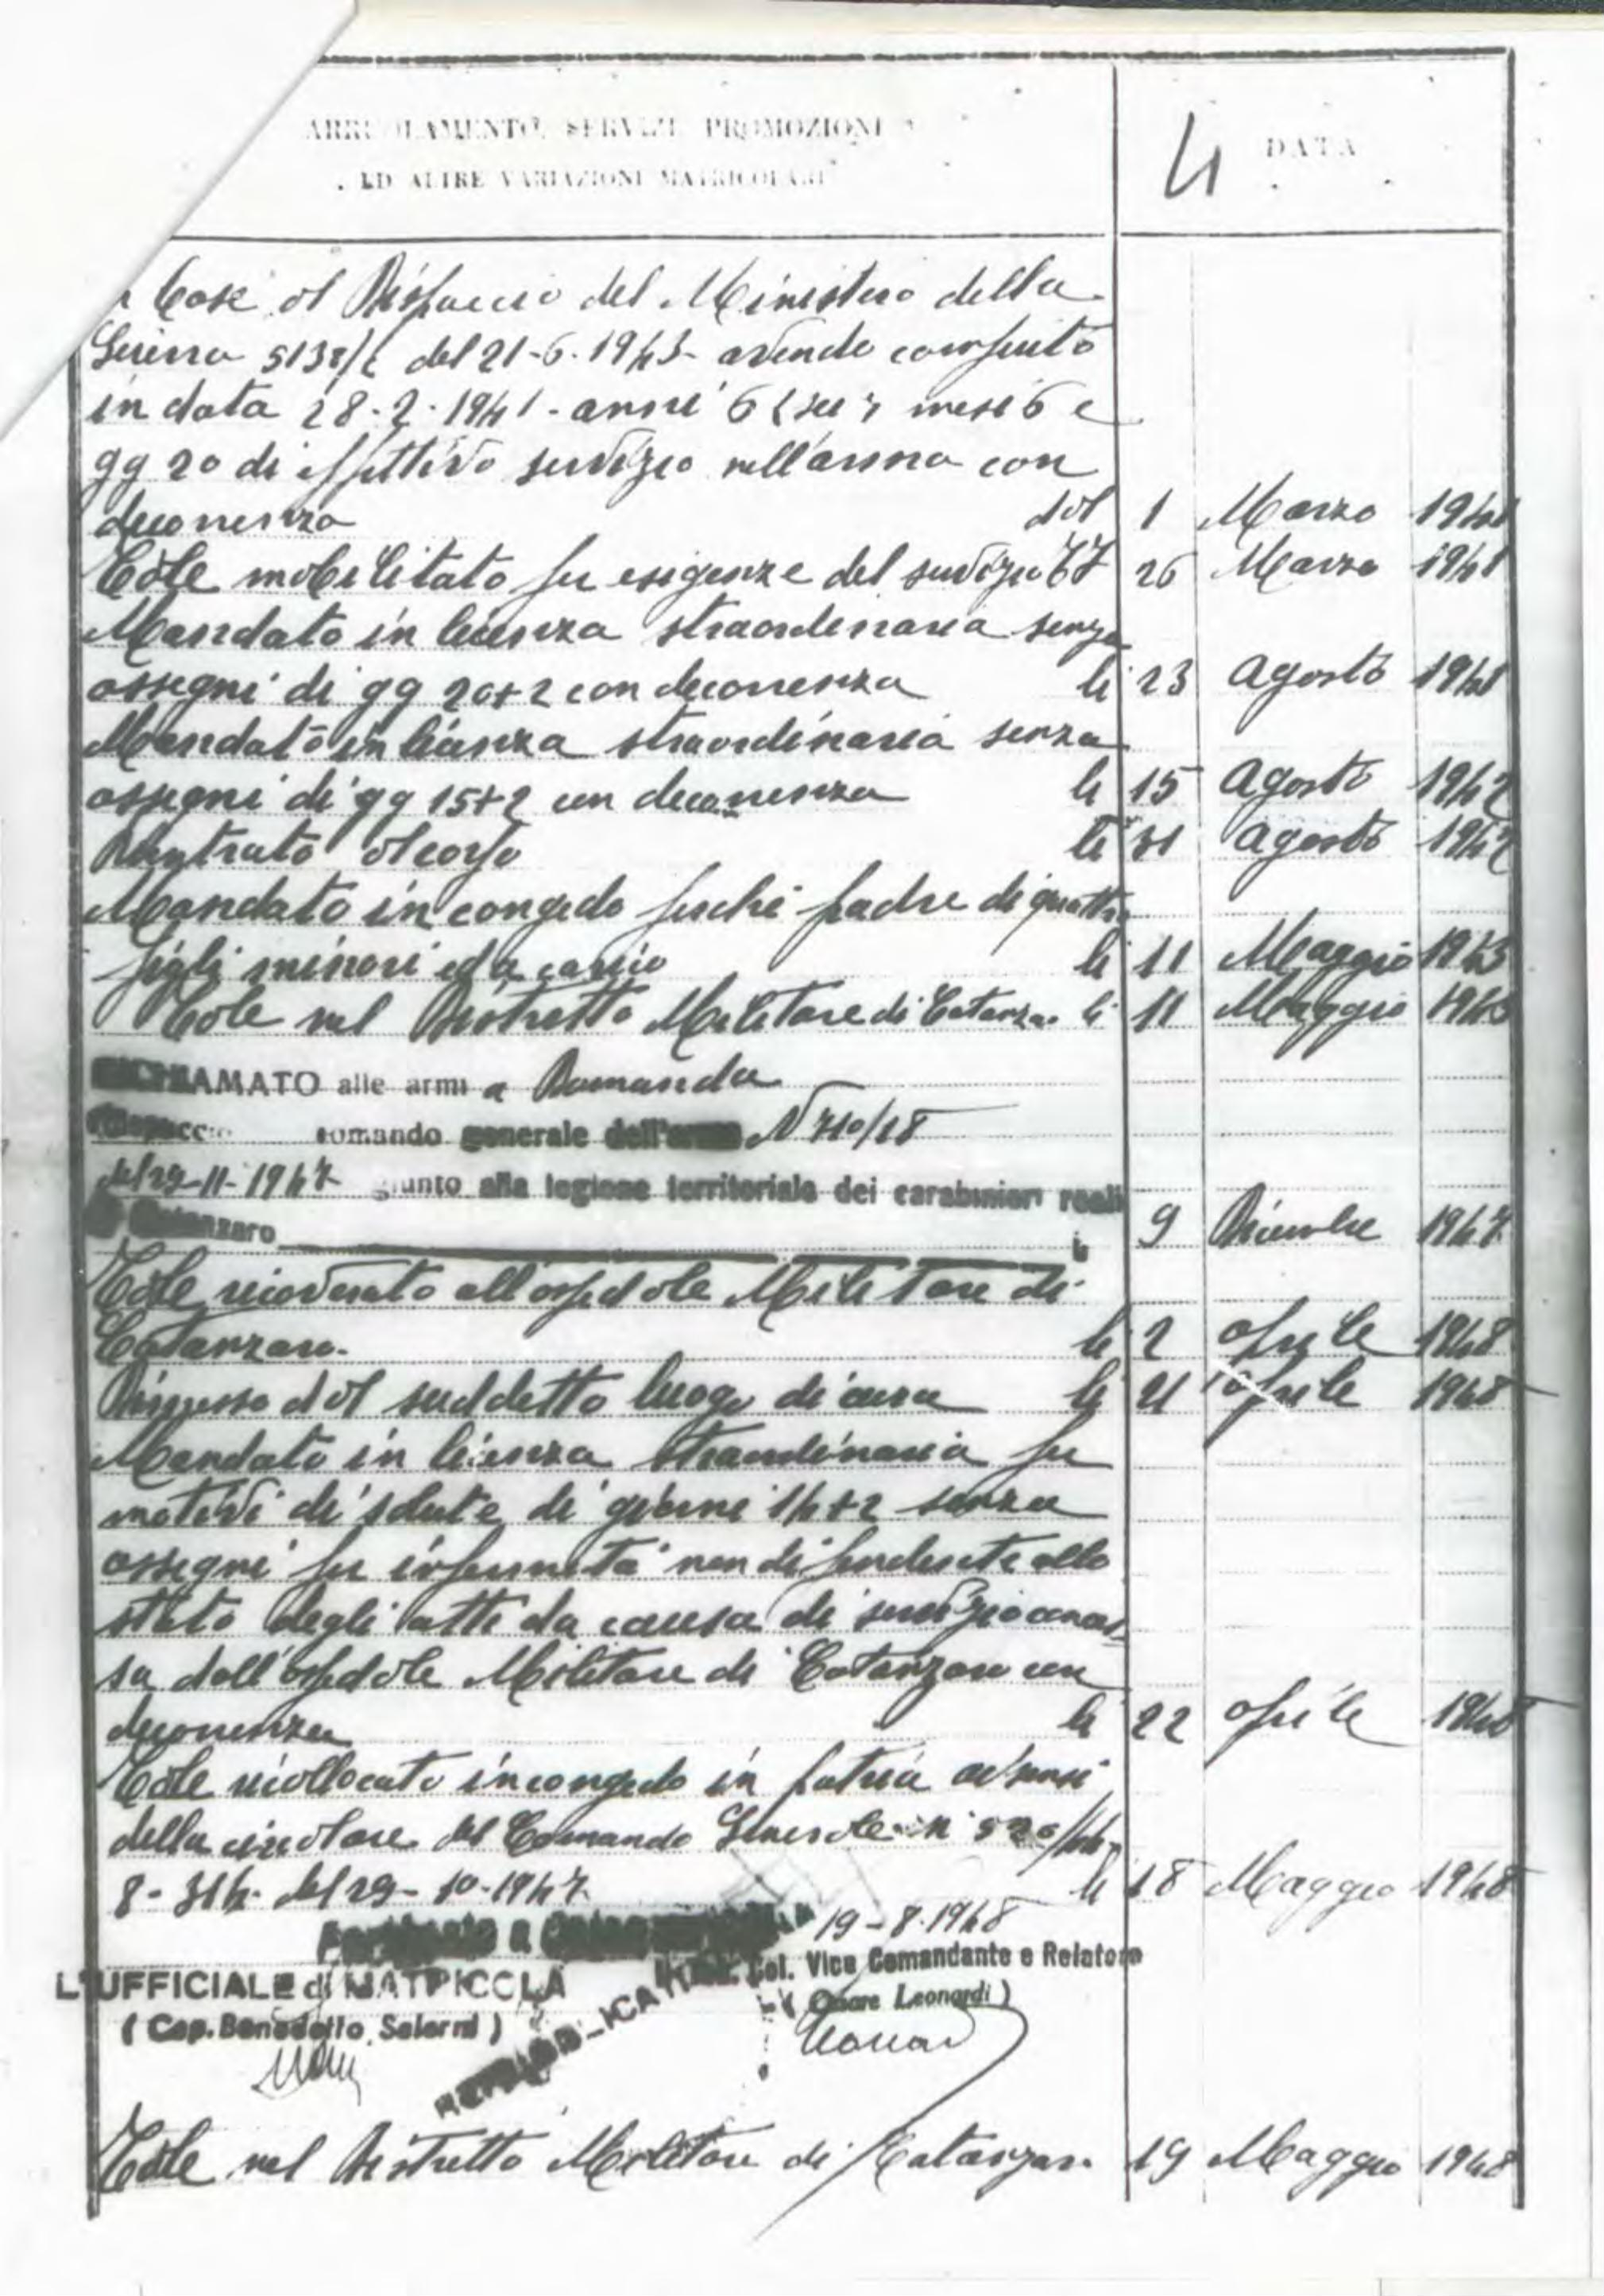 ARRUOLAMENTO, SERVIZI PROMOZIONI
ED ALTRE VARIAZIONI MATRICOLARI
4 DATA
Base al Dispaccio del Ministero della
Guerra 5138/2 del 21-6-1943- avendo compiuto
in data 28-2-1941- anni 6 (sei) mesi 6 e
gg 20 di effettivo servizio nell'arma con
decorrenza dal 1 Marzo 1941
Tale mobilitato per esigenze del servizio 26 Marzo 1941
Mandato in licenza straordinaria senza
assegni di gg 20+2 con decorrenza li 23 agosto 1941
Mandato in licenza straordinaria senza
assegni di gg 15+2 con decorrenza li 15 agosto 1942
Rientrato al corpo li 31 agosto 1942
Mandato in congedo perché padre di quattro
figli minori ed a carico li 11 Maggio 1943
Tale nel Distretto Militare di Catanzaro li 11 Maggio 1943
RICHIAMATO alle armi a Domanda
dispaccio comando generale dell'arma N 710/18
del 29-11-1947 giunto alla legione territoriale dei carabinieri reali
di Catanzaro li 9 Dicembre 1947
Tale ricoverato all'ospedale Militare di
Catanzaro. li 2 aprile 1948
Dimesso dal suddetto luogo di cura li 21 aprile 1948
Mandato in licenza straordinaria per
motivi di salute di giorni 14+2 senza
assegni per infermità non dipendente allo
stato degli atti da causa di servizio conces-
sa dall'ospedale Militare di Catanzaro con
decorrenza li 22 aprile 1948
Tale ricollocato in congedo in patria ai sensi
della circolare del Comando Generale n
8-314 del 29-10-1947 li 18 Maggio 1948
19-8-1948
L'UFFICIALE di MATRICOLA
Col. Vice Comandante e Relatore
(Cap. Benedetto Salerni)
(Cesare Leonardi)
Tale nel Distretto Militare di Catanzaro 19 Maggio 1948